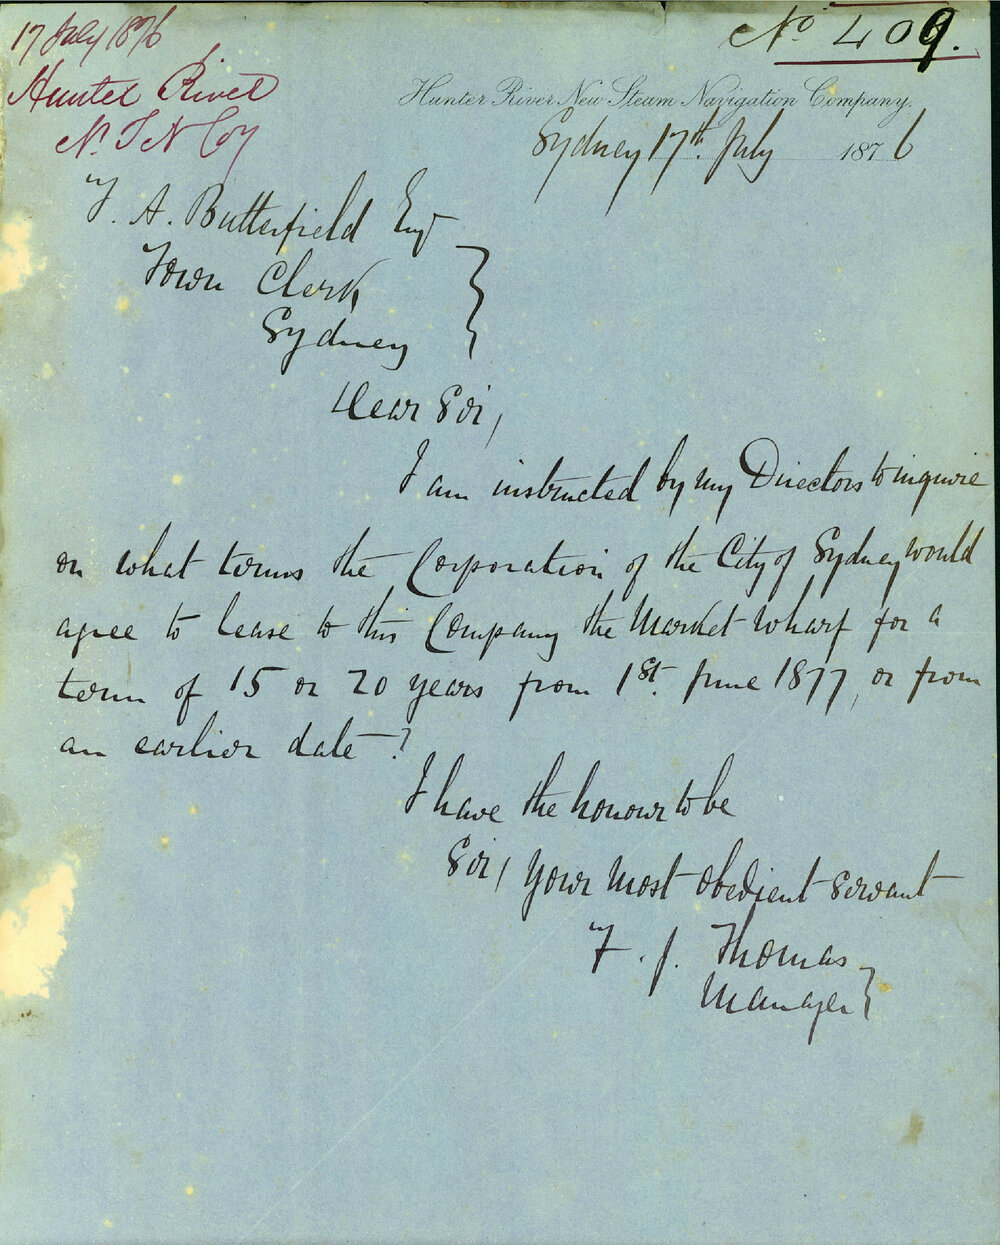 17 July 1876
Hunter River
N. S N Coy
No 409.
Hunter River New Steam Navigation Company.
Sydney 17th July 1876
F. A. Butterfield Esq
Town Clerk
Sydney
Dear Sir,
I am instructed by my Directors to inquire
on what terms the Corporation of the City of Sydney would
agree to lease to this Company the Market Wharf for a
term of 15 or 20 years from 1st June 1877, or from
an earlier date?
I have the honour to be
Sir, Your most obedient servant
F. J. Thomas
Manager